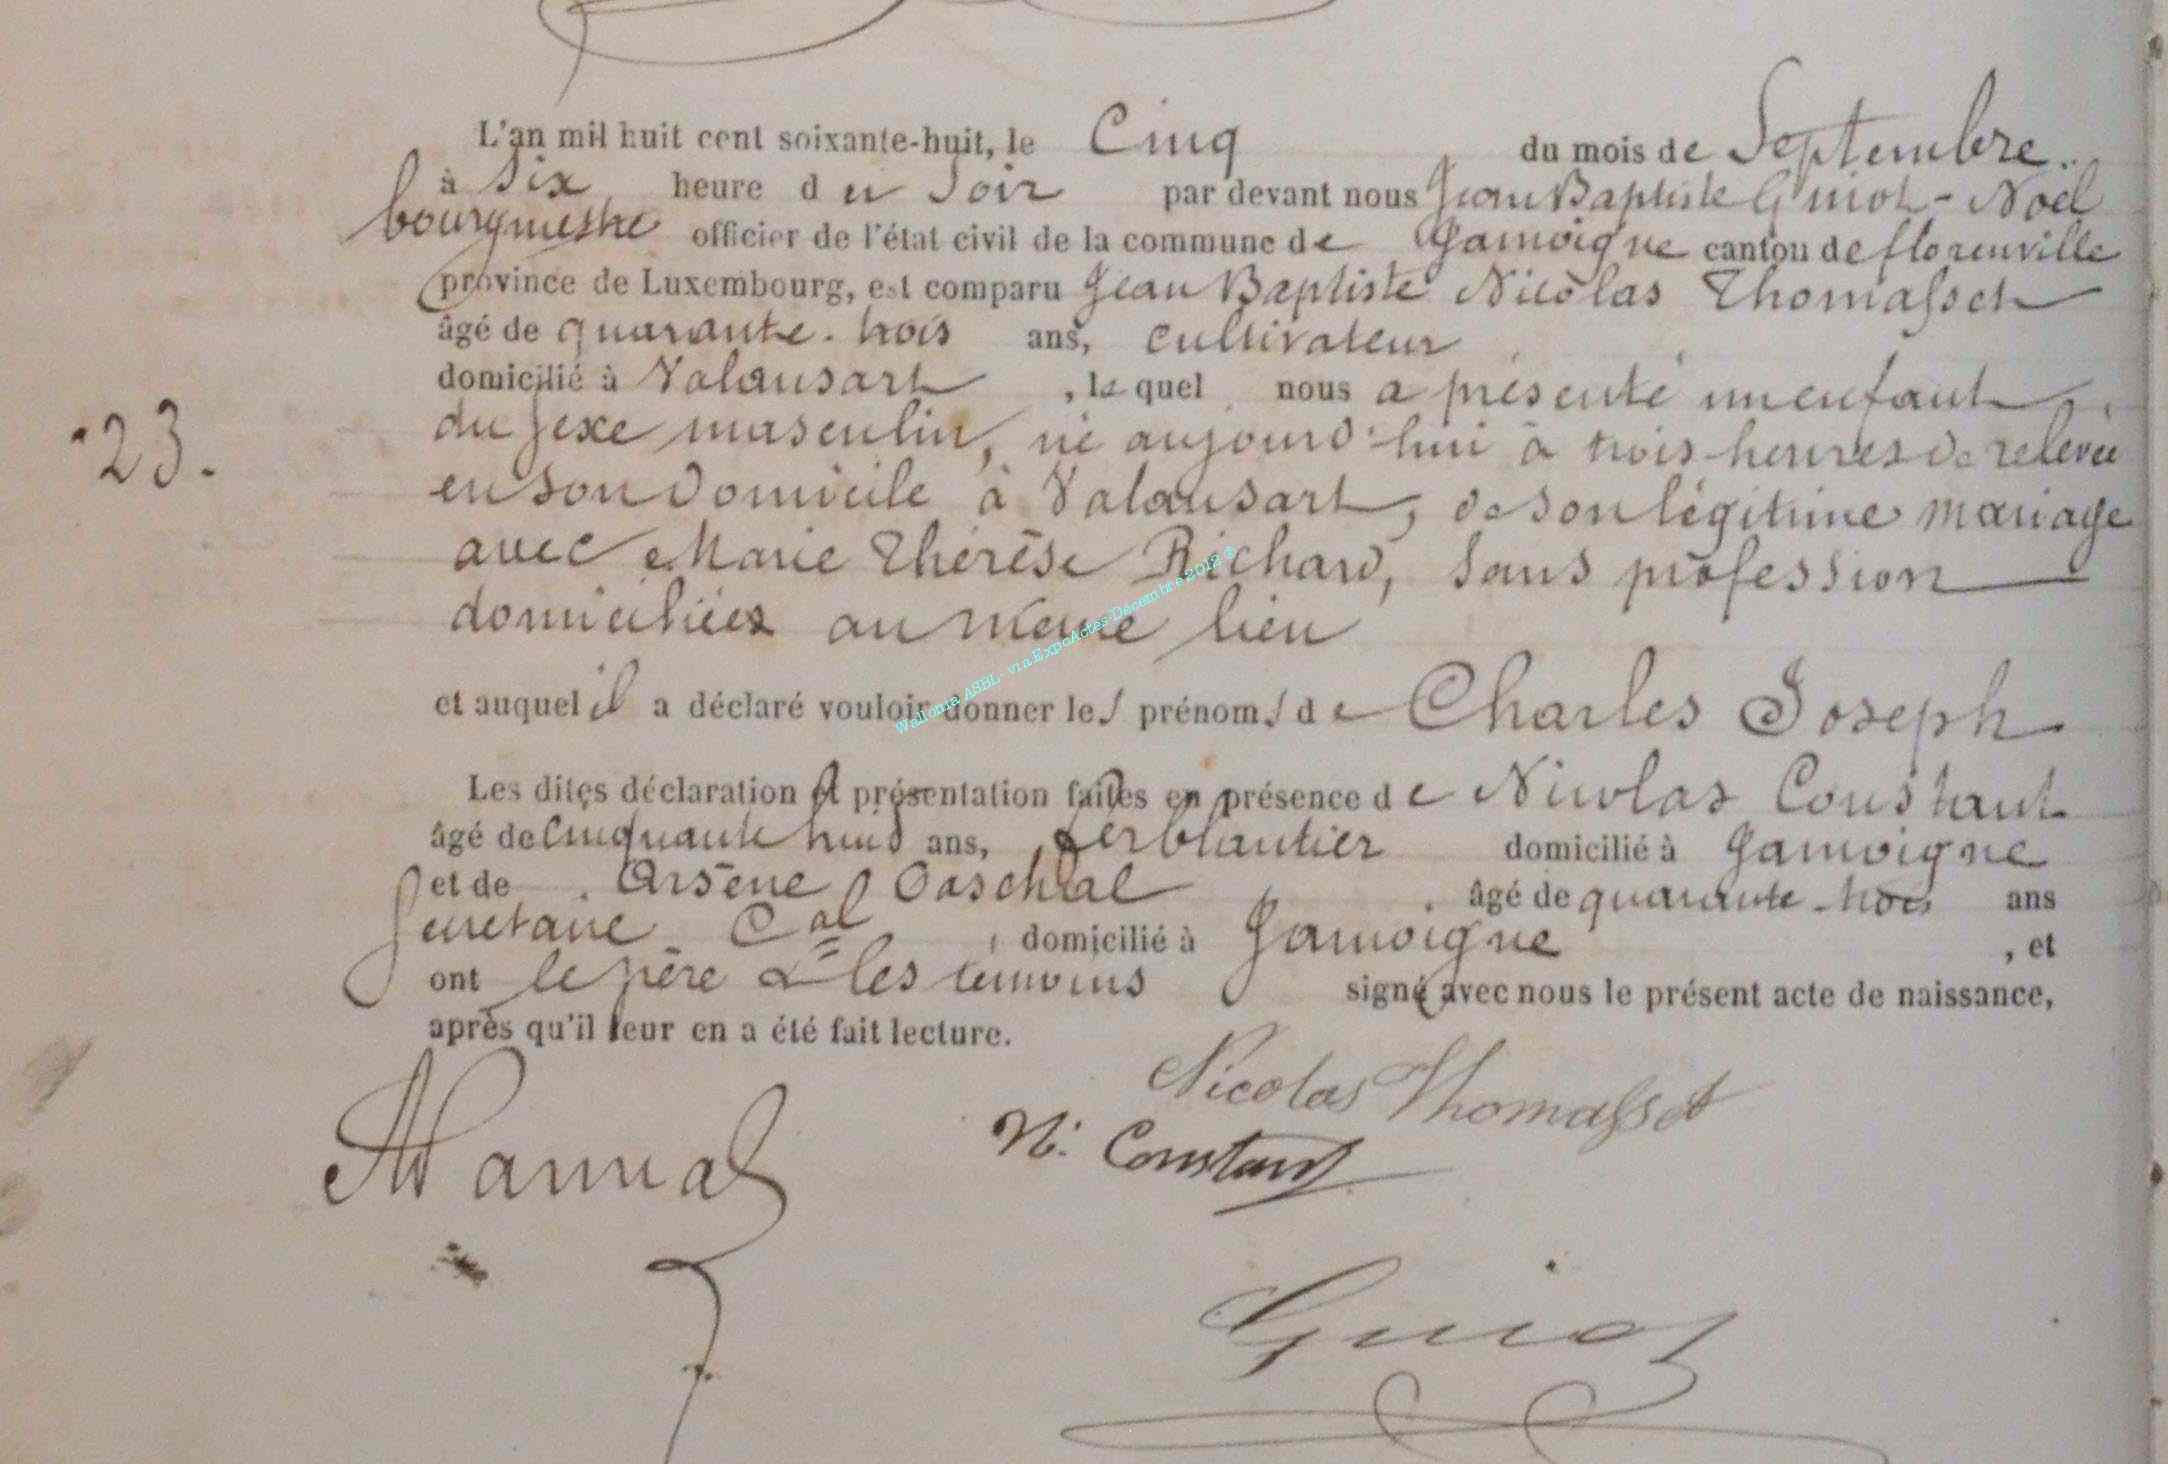 L'an mil huit cent soixante-huit, le Cinq du mois de Septembre
à Six heure du Soir par devant nous Jean Baptiste Guiot-Noël
bourgmestre officier de l'état civil de la commune de Jamoigne canton de florenville
province de Luxembourg, est comparu Jean Baptiste Nicolas Thomasset
âgé de quarante-trois ans, cultivateur
domicilié à Valansart, lequel nous a présenté un enfant
23.
du sexe masculin, né aujourd'hui à trois heures de relevée
en son domicile à Valansart, de son légitime mariage
avec Marie Thérèse Richard, sans profession
domiciliées au même lieu
et auquel il a déclaré vouloir donner les prénoms de Charles Joseph
Les dites déclaration et présentation faites en présence de Nicolas Constant
âgé de Cinquante huit ans, ferblantier domicilié à Jamoigne
et de Arsène Paschal âgé de quarante-trois ans
Secretaire Cal, domicilié à Jamoigne, et
ont le père & les temoins signé avec nous le présent acte de naissance,
après qu'il leur en a été fait lecture.
Nicolas Thomasset
N. Constant
Guiot
Wallonia ASBL- via ExpoActes-Décembre 2012 ©